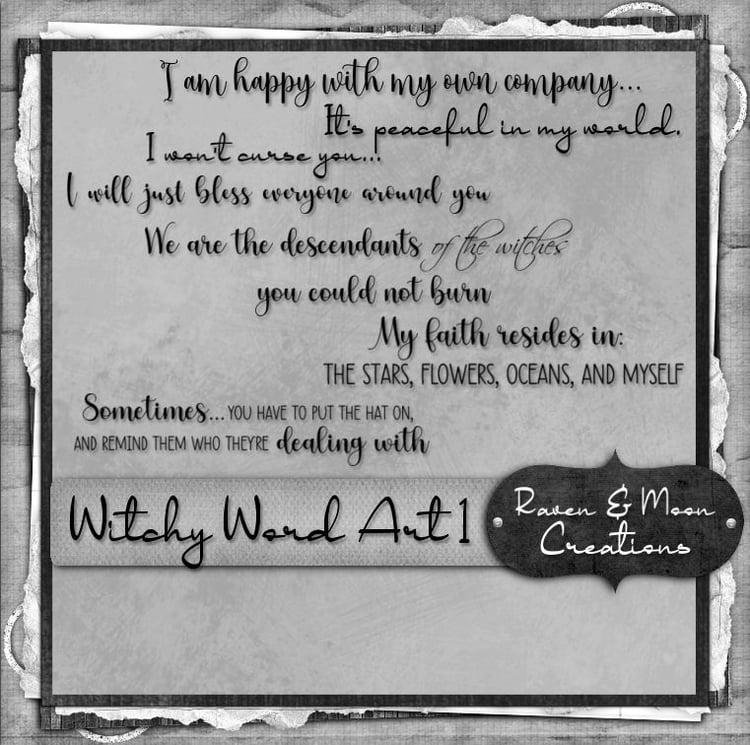 I am happy with my own company...
It's peaceful in my world.
I won't curse you...
I will just bless everyone around you
We are the descendants of the witches
you could not burn
My faith resides in:
THE STARS, FLOWERS, OCEANS, AND MYSELF
Sometimes... YOU HAVE TO PUT THE HAT ON,
AND REMIND THEM WHO THEYRE dealing with
Witchy Word Art 1
Raven & Moon
Creations